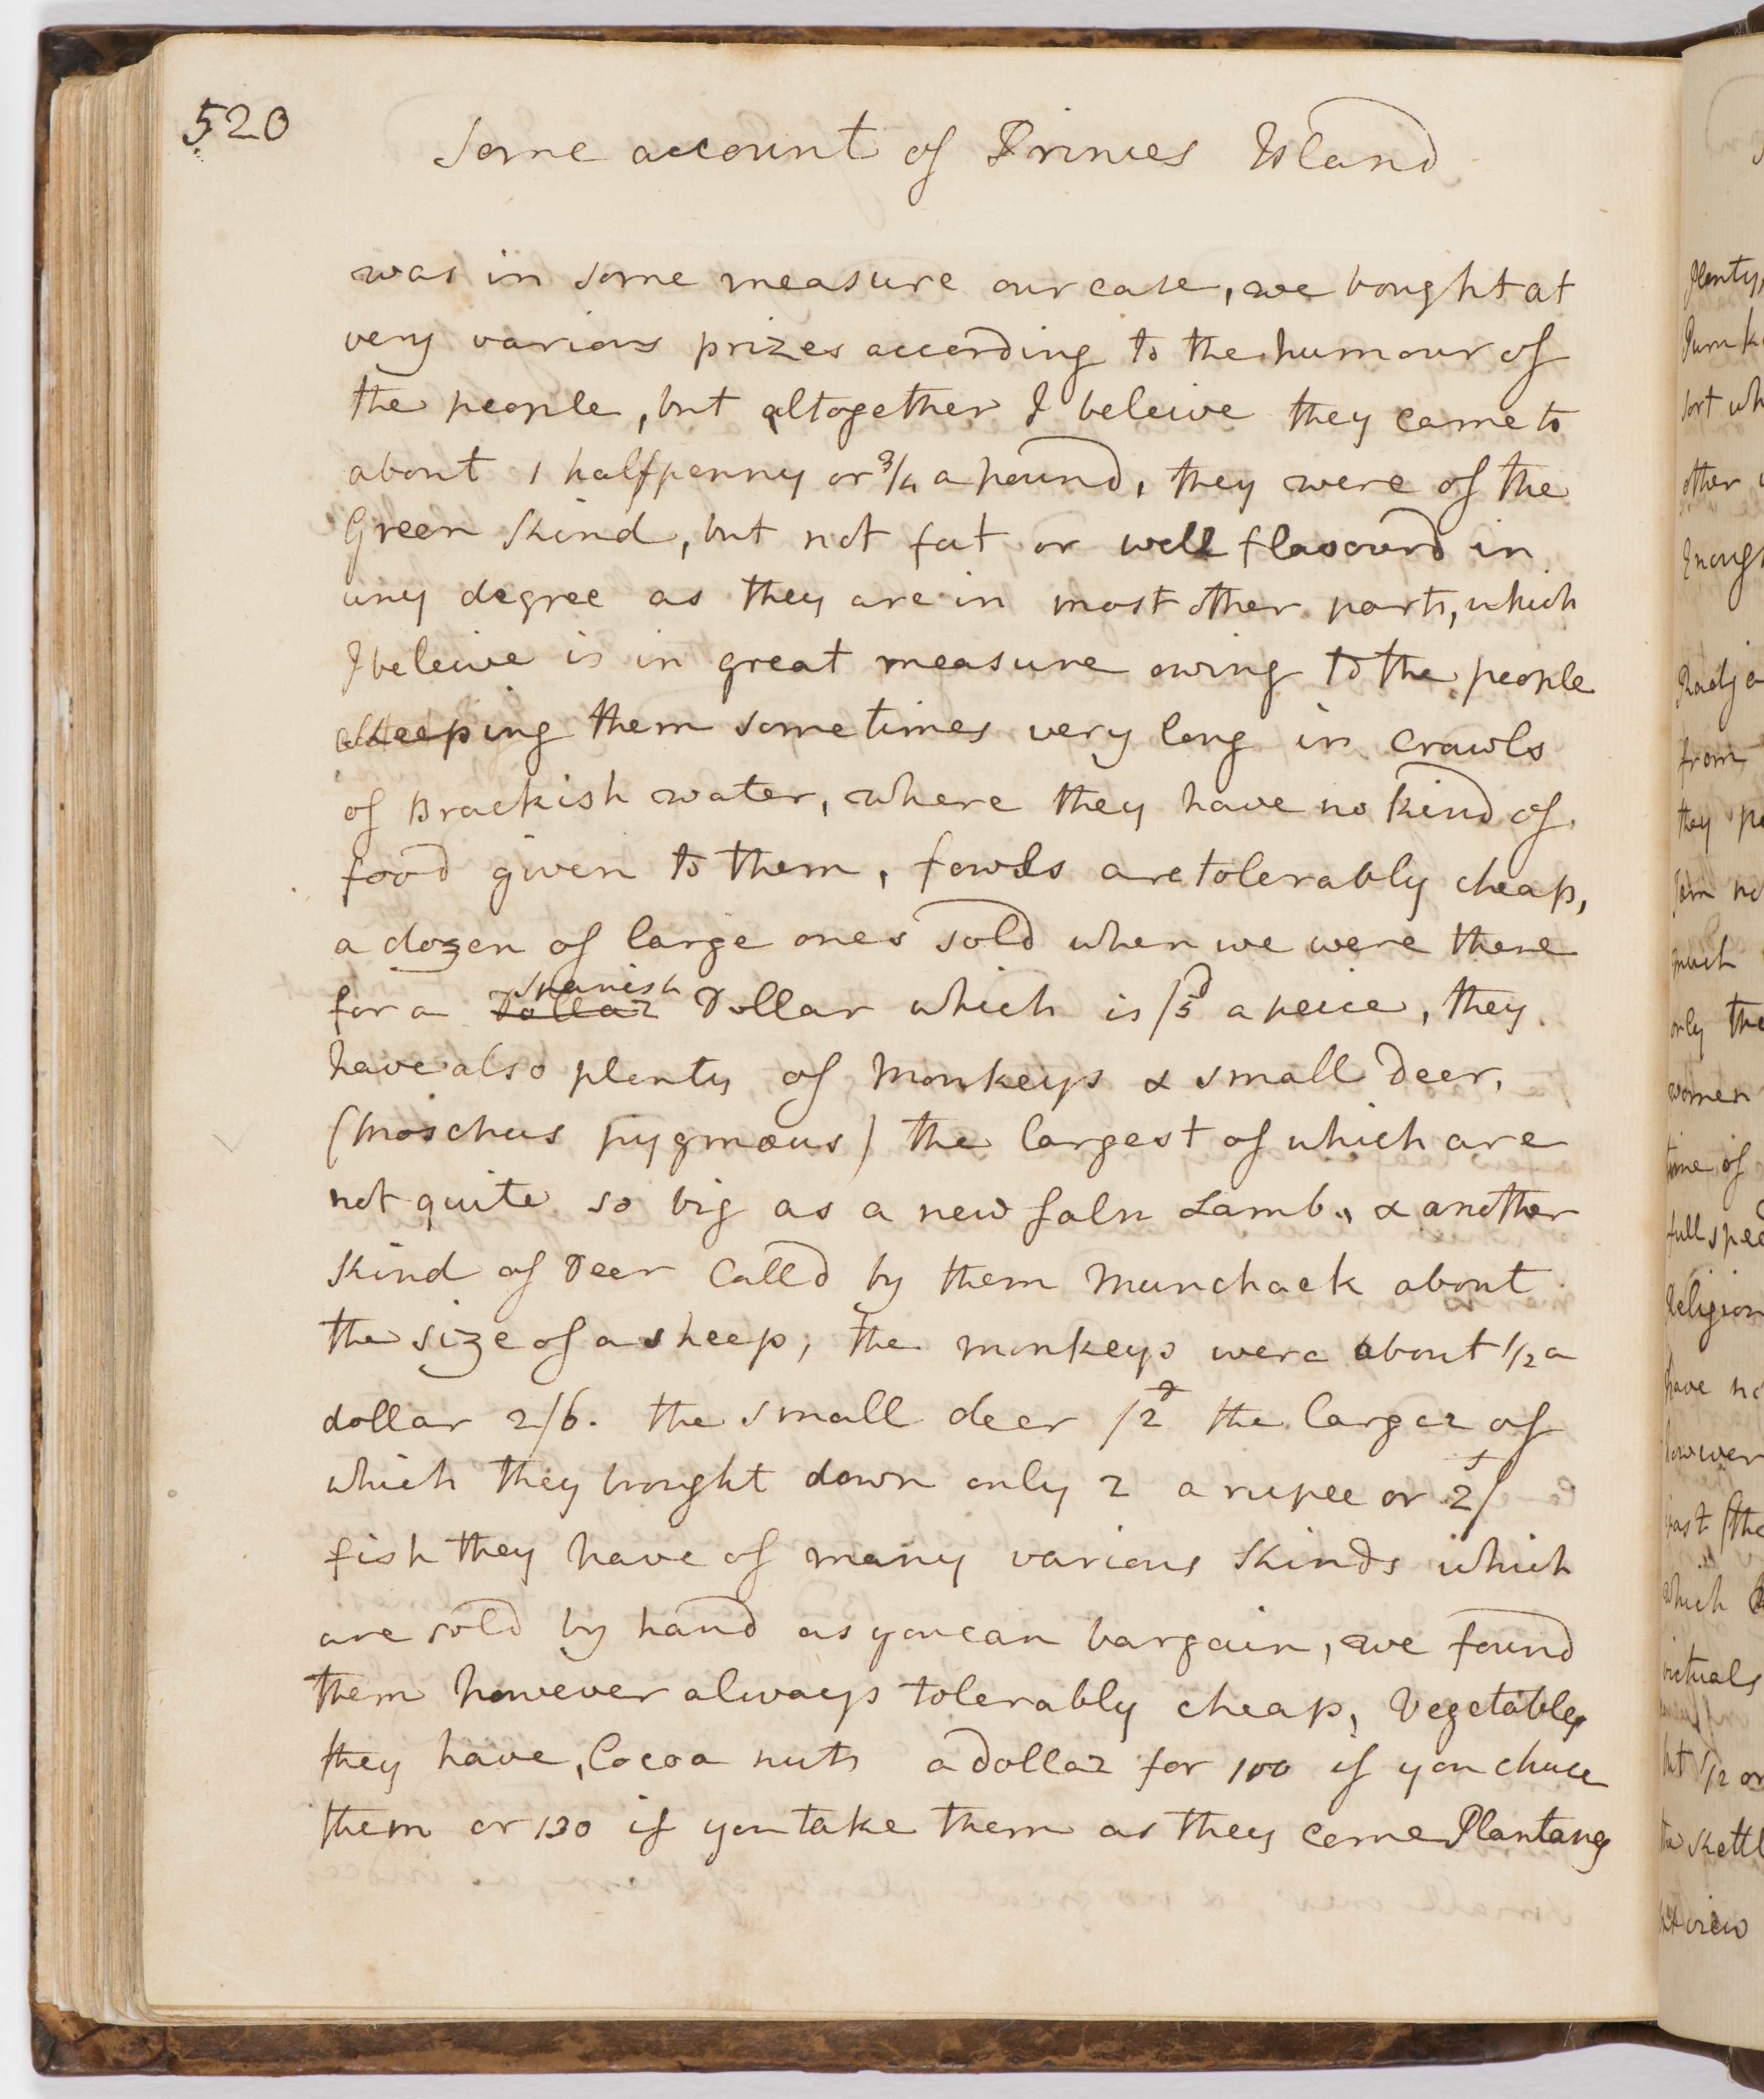 520
Some account of Princes Island
was in some measure our case, we bought at
very various prizes according to the humour of
the people, but altogether I beleive they came to
about 1 halfpenny or 3/4 a pound, they were of the
Green Kind, but not fat or well flavourd in
any degree as they are in most other parts, which
I beleive is in great measure owing to the people
keeping them sometimes very long in crawls
of Brackish water, where they have no kind of
food given to them, fowls are tolerably cheap,
a dozen of large ones sold when we were there
for a Dollar Spanish Dollar which is /5d a peice, they
have also plenty of Monkeys & small Deer,
(Moschus pygmæus) the largest of which are
not quite so big as a new faln Lamb, & another
Kind of Deer Calld by them Munchack about
the size of a sheep, the monkeys were about 1/2 a
dollar 2/6. the small deer /2d the larger of
which they brought down only 2 a rupee or 2s/
fish they have of many various Kinds which
are sold by hand as you can bargain, we found
them however always tolerably cheap, Vegetables
they have, Cocoa nuts a dollar for 100 if you chuce
them or 130 if you take them as they come Plantanes
Plenty,
sort
other
Radja
from
they
much
only the
women
time of
Religion
have
however
which
victuals
1/2 or
the